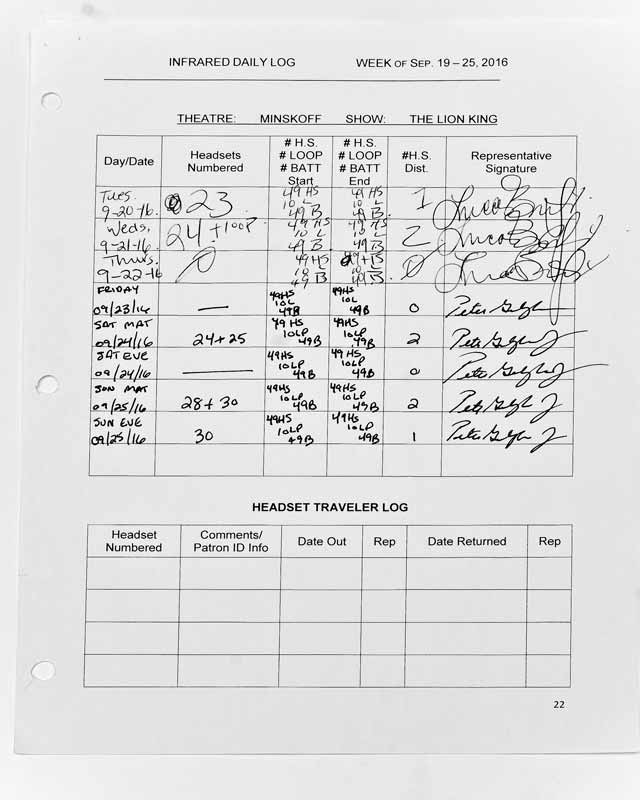 INFRARED DAILY LOG WEEK OF SEP. 19 – 25, 2016
THEATRE: MINSKOFF SHOW: THE LION KING
Day/Date Headsets Numbered # H.S. # LOOP # BATT Start # H.S. # LOOP # BATT End #H.S. Dist. Representative Signature
Tues. 9-20-16. 23 49 HS 10 L 49 B 49 HS 10 L 49 B. 1
Weds. 9-21-16 24 + 1 loop 49 HS 10 L 49 B 49 HS 10 L 49 B 2
Thurs. 9-22-16 0 49 HS 10 L 49 B 10 L 49 B 0
FRIDAY 09/23/16 — 49HS 10L 49B 49HS 10L 49B 0 Peter
SAT MAT 09/24/16 24+25 49 HS 10LP 49B 49HS 10LP 49B 2 Peter
SAT EVE 09/24/16 — 49HS 10LP 49B 49 HS 10LP 49B 0 Peter
SUN MAT 09/25/16 28+30 49HS 10LP 49B 49HS 10LP 49B 2 Peter
SUN EVE 09/25/16 30 49HS 10LP 49B 49HS 10LP 49B 1 Peter
HEADSET TRAVELER LOG
Headset Numbered Comments/ Patron ID Info Date Out Rep Date Returned Rep
22